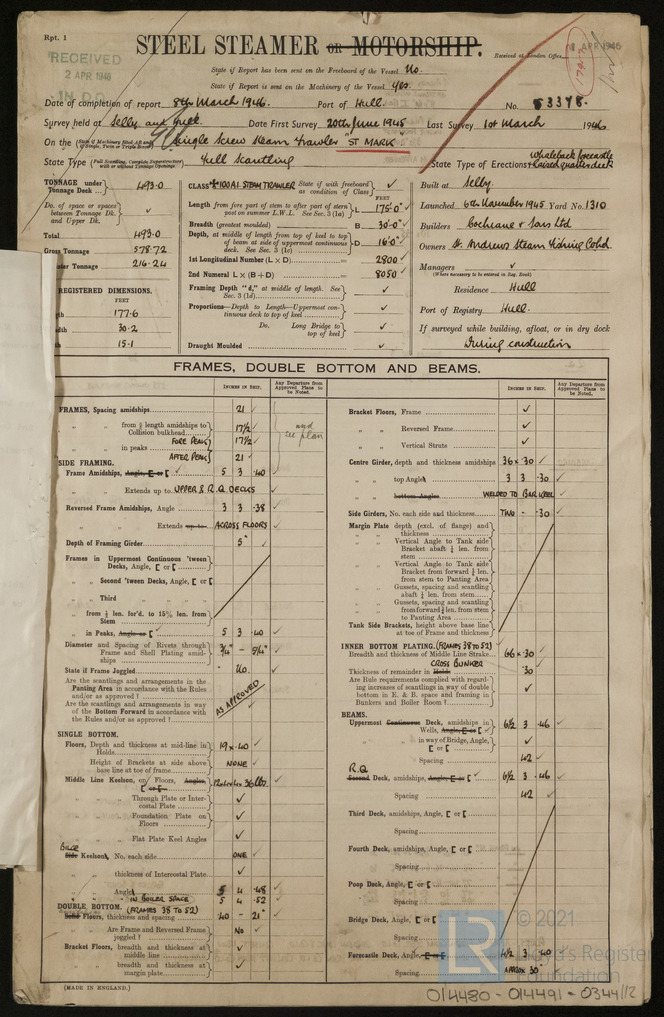 Rpt. 1
STEEL STEAMER OR MOTORSHIP.
RECEIVED
2 APR 1948
IN D.O.
Received at London Office
APR 1946
State if Report has been sent on the Freeboard of the Vessel No.
State if Report is sent on the Machinery of the Vessel Yes.
Date of completion of report 8th March 1946. Port of Hull. No. 53378.
Survey held at Selby and Hull. Date First Survey 20th June 1945 Last Survey 1st March 1946
On the Single Screw Steam Trawler "ST MARK"
State Type (Full Scantling, Complete Superstructure with or without Tonnage Openings) Full Scantling State Type of Erections Whaleback forecastle + raised quarterdeck
TONNAGE under Tonnage Deck 493.0
Do. of space or spaces between Tonnage Dk. and Upper Dk.
Total 493.0
Gross Tonnage 578.72
Tonnage 216.24
REGISTERED DIMENSIONS.
FEET
177.6
30.2
15.1
CLASS +100A1 STEAM TRAWLER State if with freeboard as condition of Class
FEET
Length from fore part of stem to after part of stern post on summer L.W.L. See Sec. 3 (1a) L 175'.0"
Breadth (greatest moulded) B 30'.0"
Depth, at middle of length from top of keel to top of beam at side of uppermost continuous deck. See Sec. 3 (1c) D 16'.0"
1st Longitudinal Number (L × D) 2800
2nd Numeral L × (B + D) 8050
Framing Depth "d," at middle of length. See Sec. 3 (1d)
Proportions—Depth to Length—Uppermost continuous deck to top of keel
Do. Long Bridge to top of keel
Draught Moulded
Built at Selby.
Launched 6th November 1945 Yard No. 1310
Builders Cochrane & Sons Ltd
Owners St. Andrews Steam Fishing Co Ltd.
Managers
(Where necessary to be entered in Reg. Book)
Residence Hull
Port of Registry Hull.
If surveyed while building, afloat, or in dry dock
During construction
FRAMES, DOUBLE BOTTOM AND BEAMS.
INCHES IN SHIP. Any Departure from Approved Plans to be Noted.
FRAMES, Spacing amidships 21
" " from ⅕ length amidships to Collision bulkhead 17½
" " in peaks FORE PEAK 17½
AFTER PEAK 21
plan
SIDE FRAMING.
Frame Amidships, Angle, [ or [ 5 3 .40
Extends up to UPPER & R.Q. DECKS
Reversed Frame Amidships, Angle 3 3 .38
Extends up to ACROSS FLOORS
Depth of Framing Girder 5"
Frames in Uppermost Continuous 'tween Decks, Angle, [ or [
" Second 'tween Decks, Angle, [ or [
" Third " " "
" from ⅕ len. for'd. to 15% len. from Stem
" in Peaks, Angle or [ 5 3 .40
Diameter and Spacing of Rivets through Frame and Shell Plating amidships
State if Frame Joggled No.
Are the scantlings and arrangements in the Panting Area in accordance with the Rules and/or as approved ?
Are the scantlings and arrangements in way of the Bottom Forward in accordance with the Rules and/or as approved ?
AS APPROVED
SINGLE BOTTOM.
Floors, Depth and thickness at mid-line in Holds 19 x .40
Height of Brackets at side above base line at toe of frame NONE
Middle Line Keelson, on Floors, Angles, [ or [
" " Through Plate or Intercostal Plate
" " Foundation Plate on Floors
" " Flat Plate Keel Angles
BILGE
Side Keelson, No. each side ONE
" " thickness of Intercostal Plate
" " Angle 5 4 .48
" " IN BOILER SPACE 5 4 .52
DOUBLE BOTTOM. (FRAMES 38 TO 52)
Solid Floors, thickness and spacing .40 - 21"
" " Are Frame and Reversed Frame joggled ? No
Bracket Floors, breadth and thickness at middle line
" " breadth and thickness at margin plate
INCHES IN SHIP. Any Departure from Approved Plans to be Noted.
Bracket Floors, Frame
" " Reversed Frame
" " Vertical Struts
Centre Girder, depth and thickness amidships 36 x .30
" " top Angle 3 3 .30
" " bottom Angles WELDED TO BAR KEEL
Side Girders, No. each side and thickness TWO - .30
Margin Plate depth (excl. of flange) and thickness
" " Vertical Angle to Tank side Bracket abaft ¼ len. from stem
" " Vertical Angle to Tank side Bracket from forward ¼ len. from stem to Panting Area
" " Gussets, spacing and scantling abaft ¼ len. from stem
" " Gussets, spacing and scantling from forward ¼ len. from stem to Panting Area
Tank Side Brackets, height above base line at toe of Frame and thickness
INNER BOTTOM PLATING. (FRAMES 38 TO 52)
Breadth and thickness of Middle Line Strake 66 x .30
CROSS BUNKER
Thickness of remainder in Holds .30
Are Rule requirements complied with regarding increases of scantlings in way of double bottom in E. & B. space and framing in Bunkers and Boiler Room ?
BEAMS.
Uppermost Continuous Deck, amidships in Wells, Angle, [ or [ 6½ 3 .46
" " in way of Bridge, Angle, [ or [
Spacing 42
R.Q.
Second Deck, amidships, Angle, [ or [ 6½ 3 .46
Spacing 42
Third Deck, amidships, Angle, [ or [
Spacing
Fourth Deck, amidships, Angle, [ or [
Spacing
Poop Deck, Angle, [ or [
Spacing
Bridge Deck, Angle, [ or [
Spacing
Forecastle Deck, Angle, [ or [ 4½ 3 .40
Spacing APPROX 30"
(MADE IN ENGLAND.)
LR
© 2021
Lloyd's Register
Foundation
014480 - 014491 - 0344 1/2